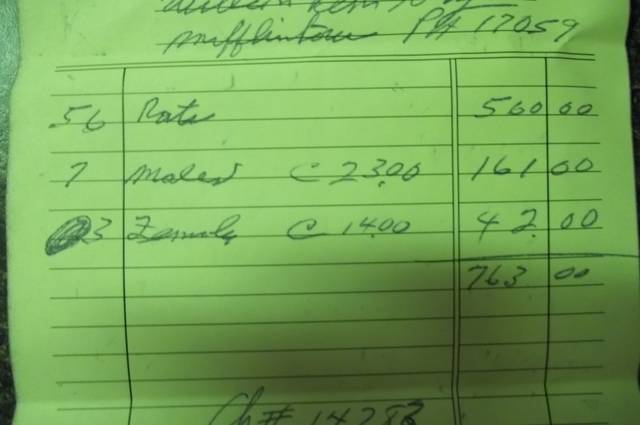 Mifflintown PA 17059
56 Rats 560 00
7 Males @ 23.00 161 00
3 Female @ 14.00 42.00
763 00
Ch# 14283